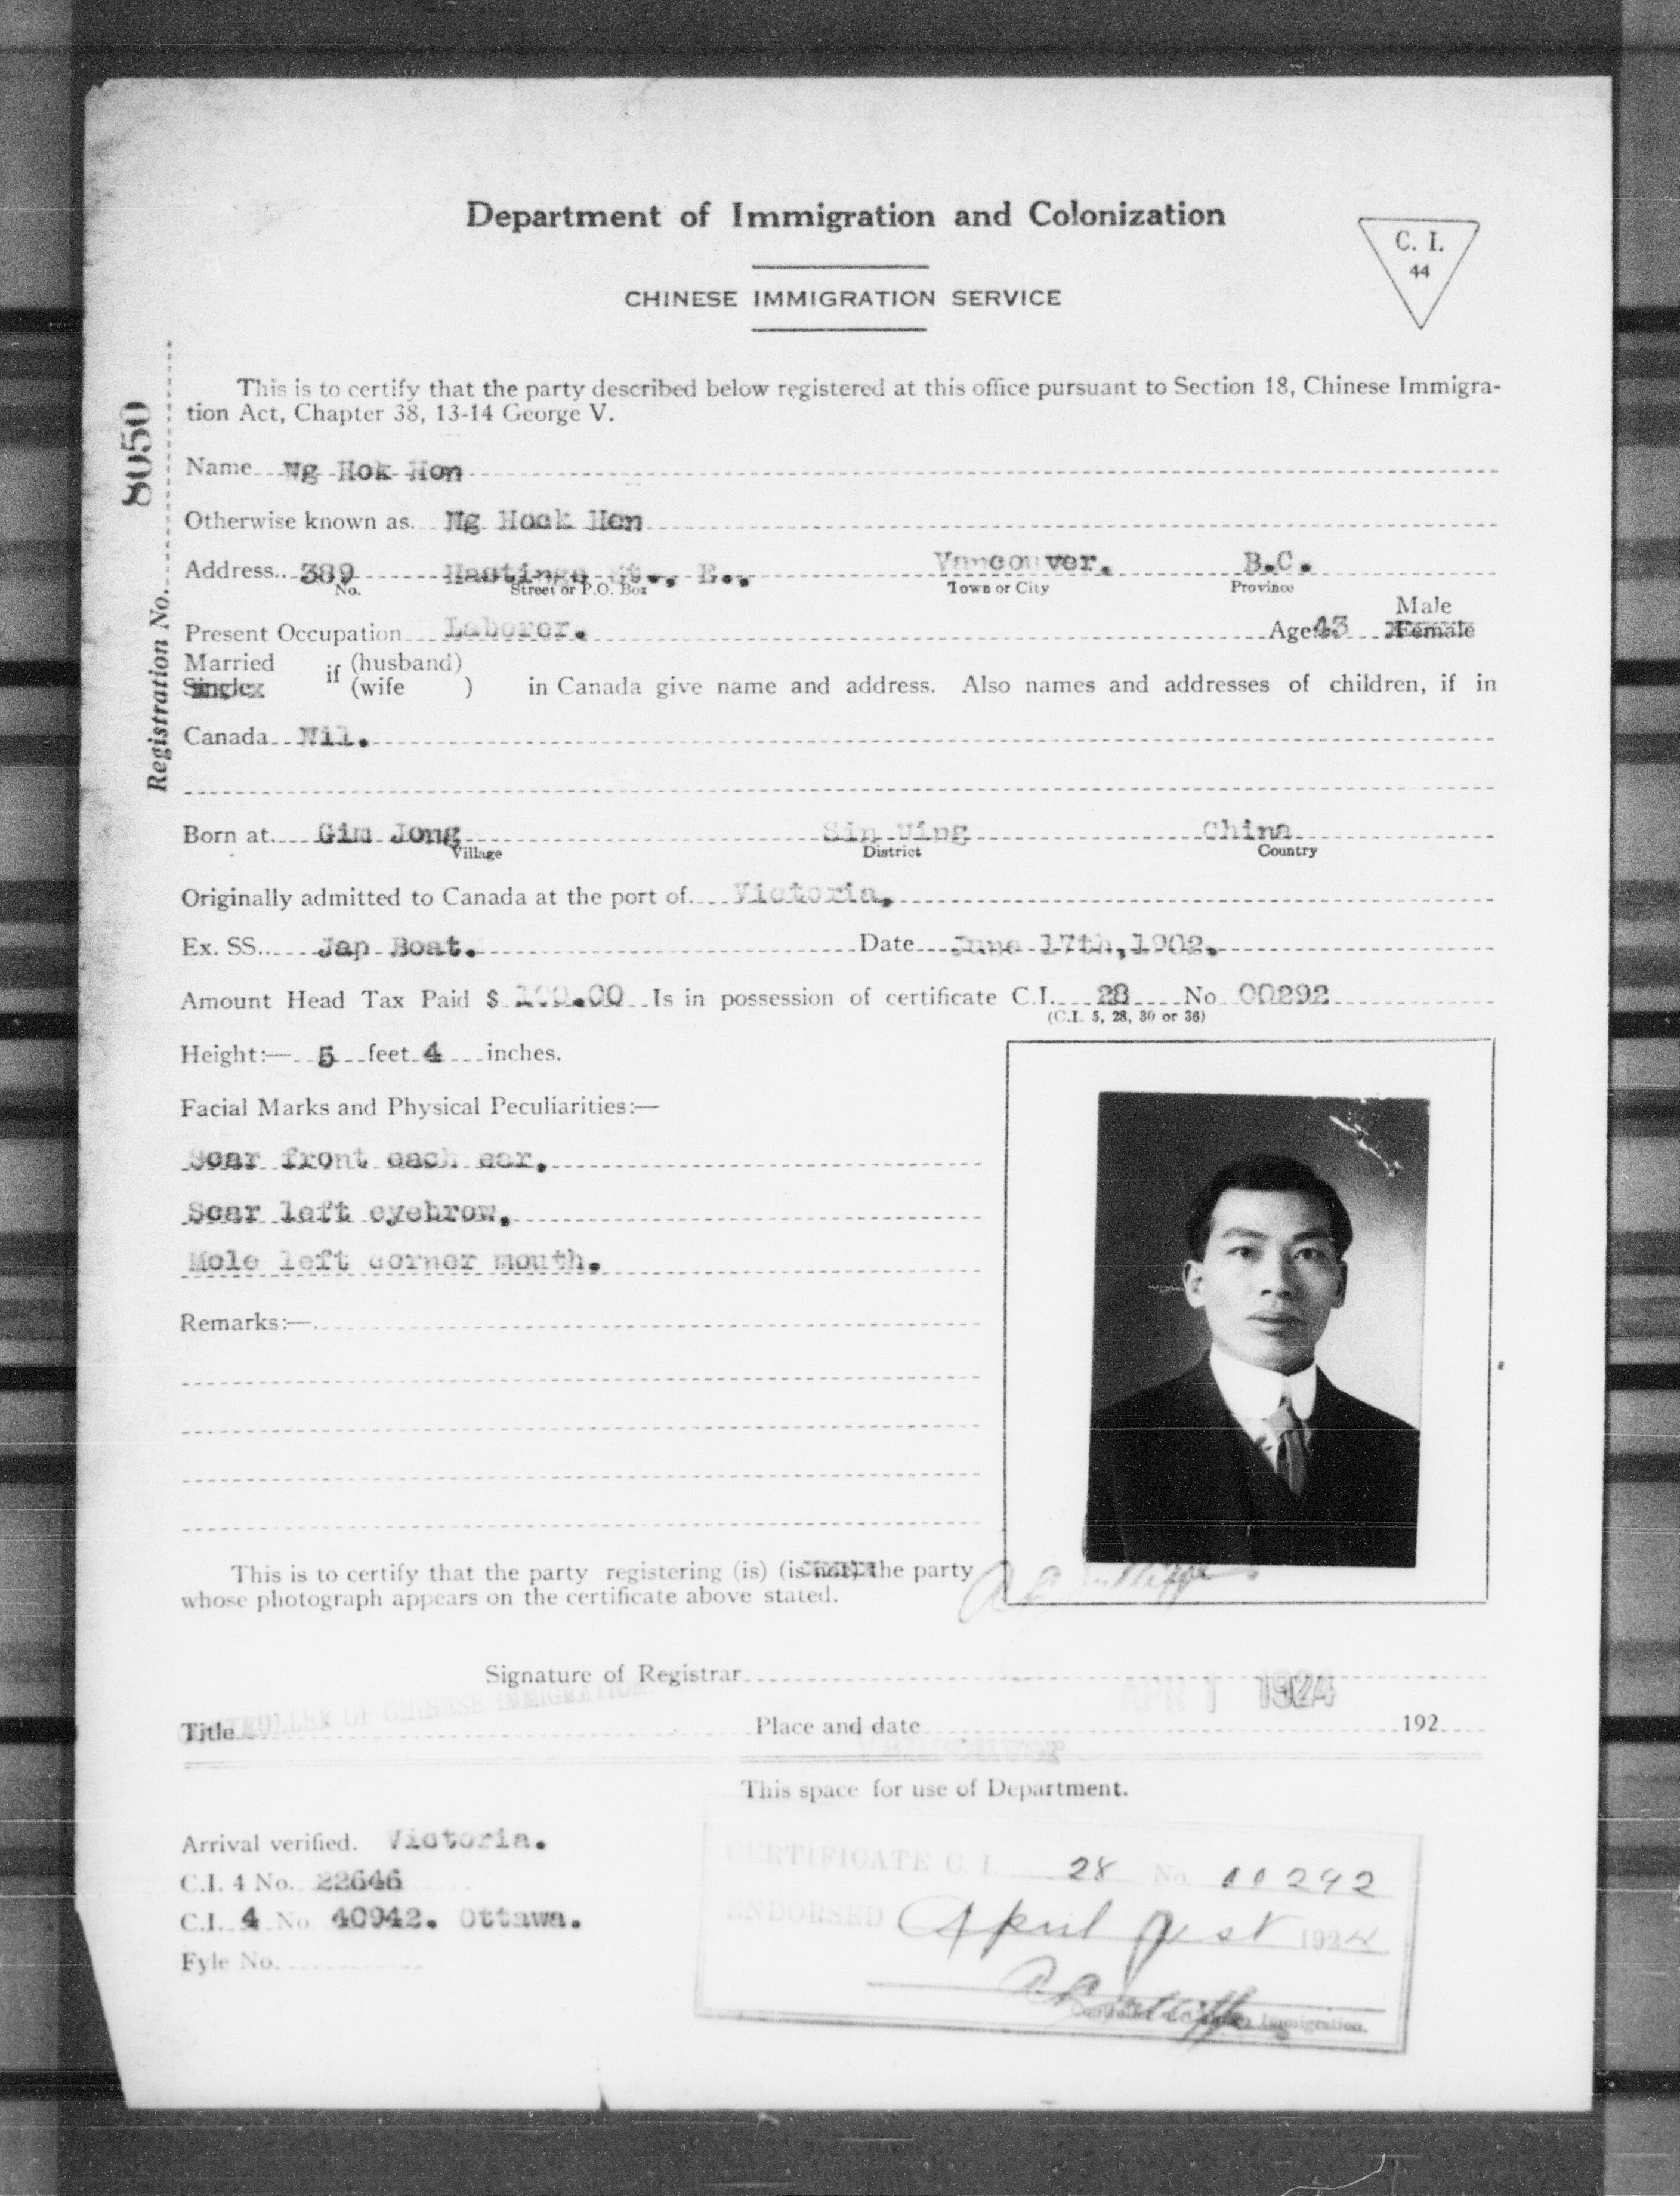 Department of Immigration and Colonization
C. I.
44
CHINESE IMMIGRATION SERVICE
This is to certify that the party described below registered at this office pursuant to Section 18, Chinese Immigra-
tion Act, Chapter 38, 13-14 George V.
Registration No. 8050
Name Ng Hok Hon
Otherwise known as. Ng Hock Hon
Address 389 Hastings St., E., Vancouver. B.C.
No. Street or P.O. Box Town or City Province
Male
Present Occupation Laborer. Age 43 Female
Married if (husband)
Single (wife ) in Canada give name and address. Also names and addresses of children, if in
Canada Nil.
Born at Gim Jong Sin Wing China
Village District Country
Originally admitted to Canada at the port of Victoria.
Ex. SS. Jap Boat. Date June 17th, 1902.
Amount Head Tax Paid $ 100.00 Is in possession of certificate C.I. 28 No 00292
(C.I. 5, 28, 30 or 36)
Height:— 5 feet 4 inches.
Facial Marks and Physical Peculiarities:—
Scar front each ear.
Scar left eyebrow.
Mole left corner mouth.
Remarks:—
This is to certify that the party registering (is) (is not) the party
whose photograph appears on the certificate above stated.
Signature of Registrar
APR 1 1924
CONTROLLER OF CHINESE IMMIGRATION
Title Place and date 192
Vancouver
This space for use of Department.
Arrival verified. Victoria.
C.I. 4 No. 22646
C.I. 4 No 40942. Ottawa.
Fyle No.
CERTIFICATE C. I. 28 No. 00292
ENDORSED April 1st 1924
Immigration.